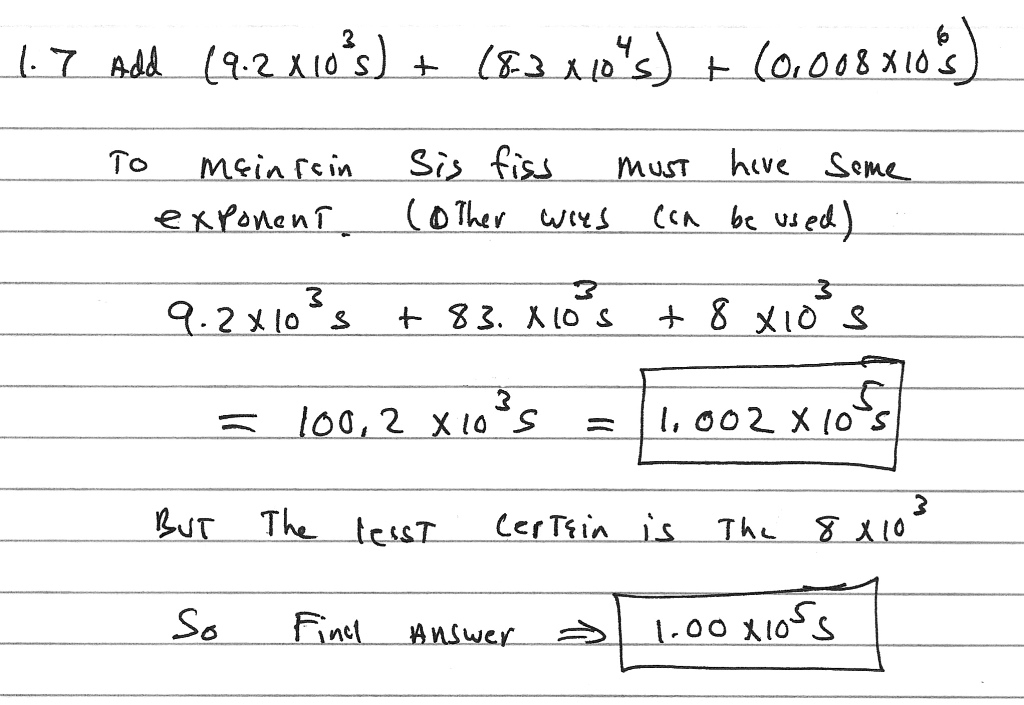 1.7 Add (9.2 x 10³ s) + (8.3 x 10⁴ s) + (0.008 x 10⁶ s)
To maintain sig figs must have same
exponent. (Other ways can be used)
9.2 x 10³ s + 83. x 10³ s + 8 x 10³ s
= 100.2 x 10³ s = 1.002 x 10⁵ s
But The least certain is The 8 x 10³
So Final Answer ⇒ 1.00 x 10⁵ s